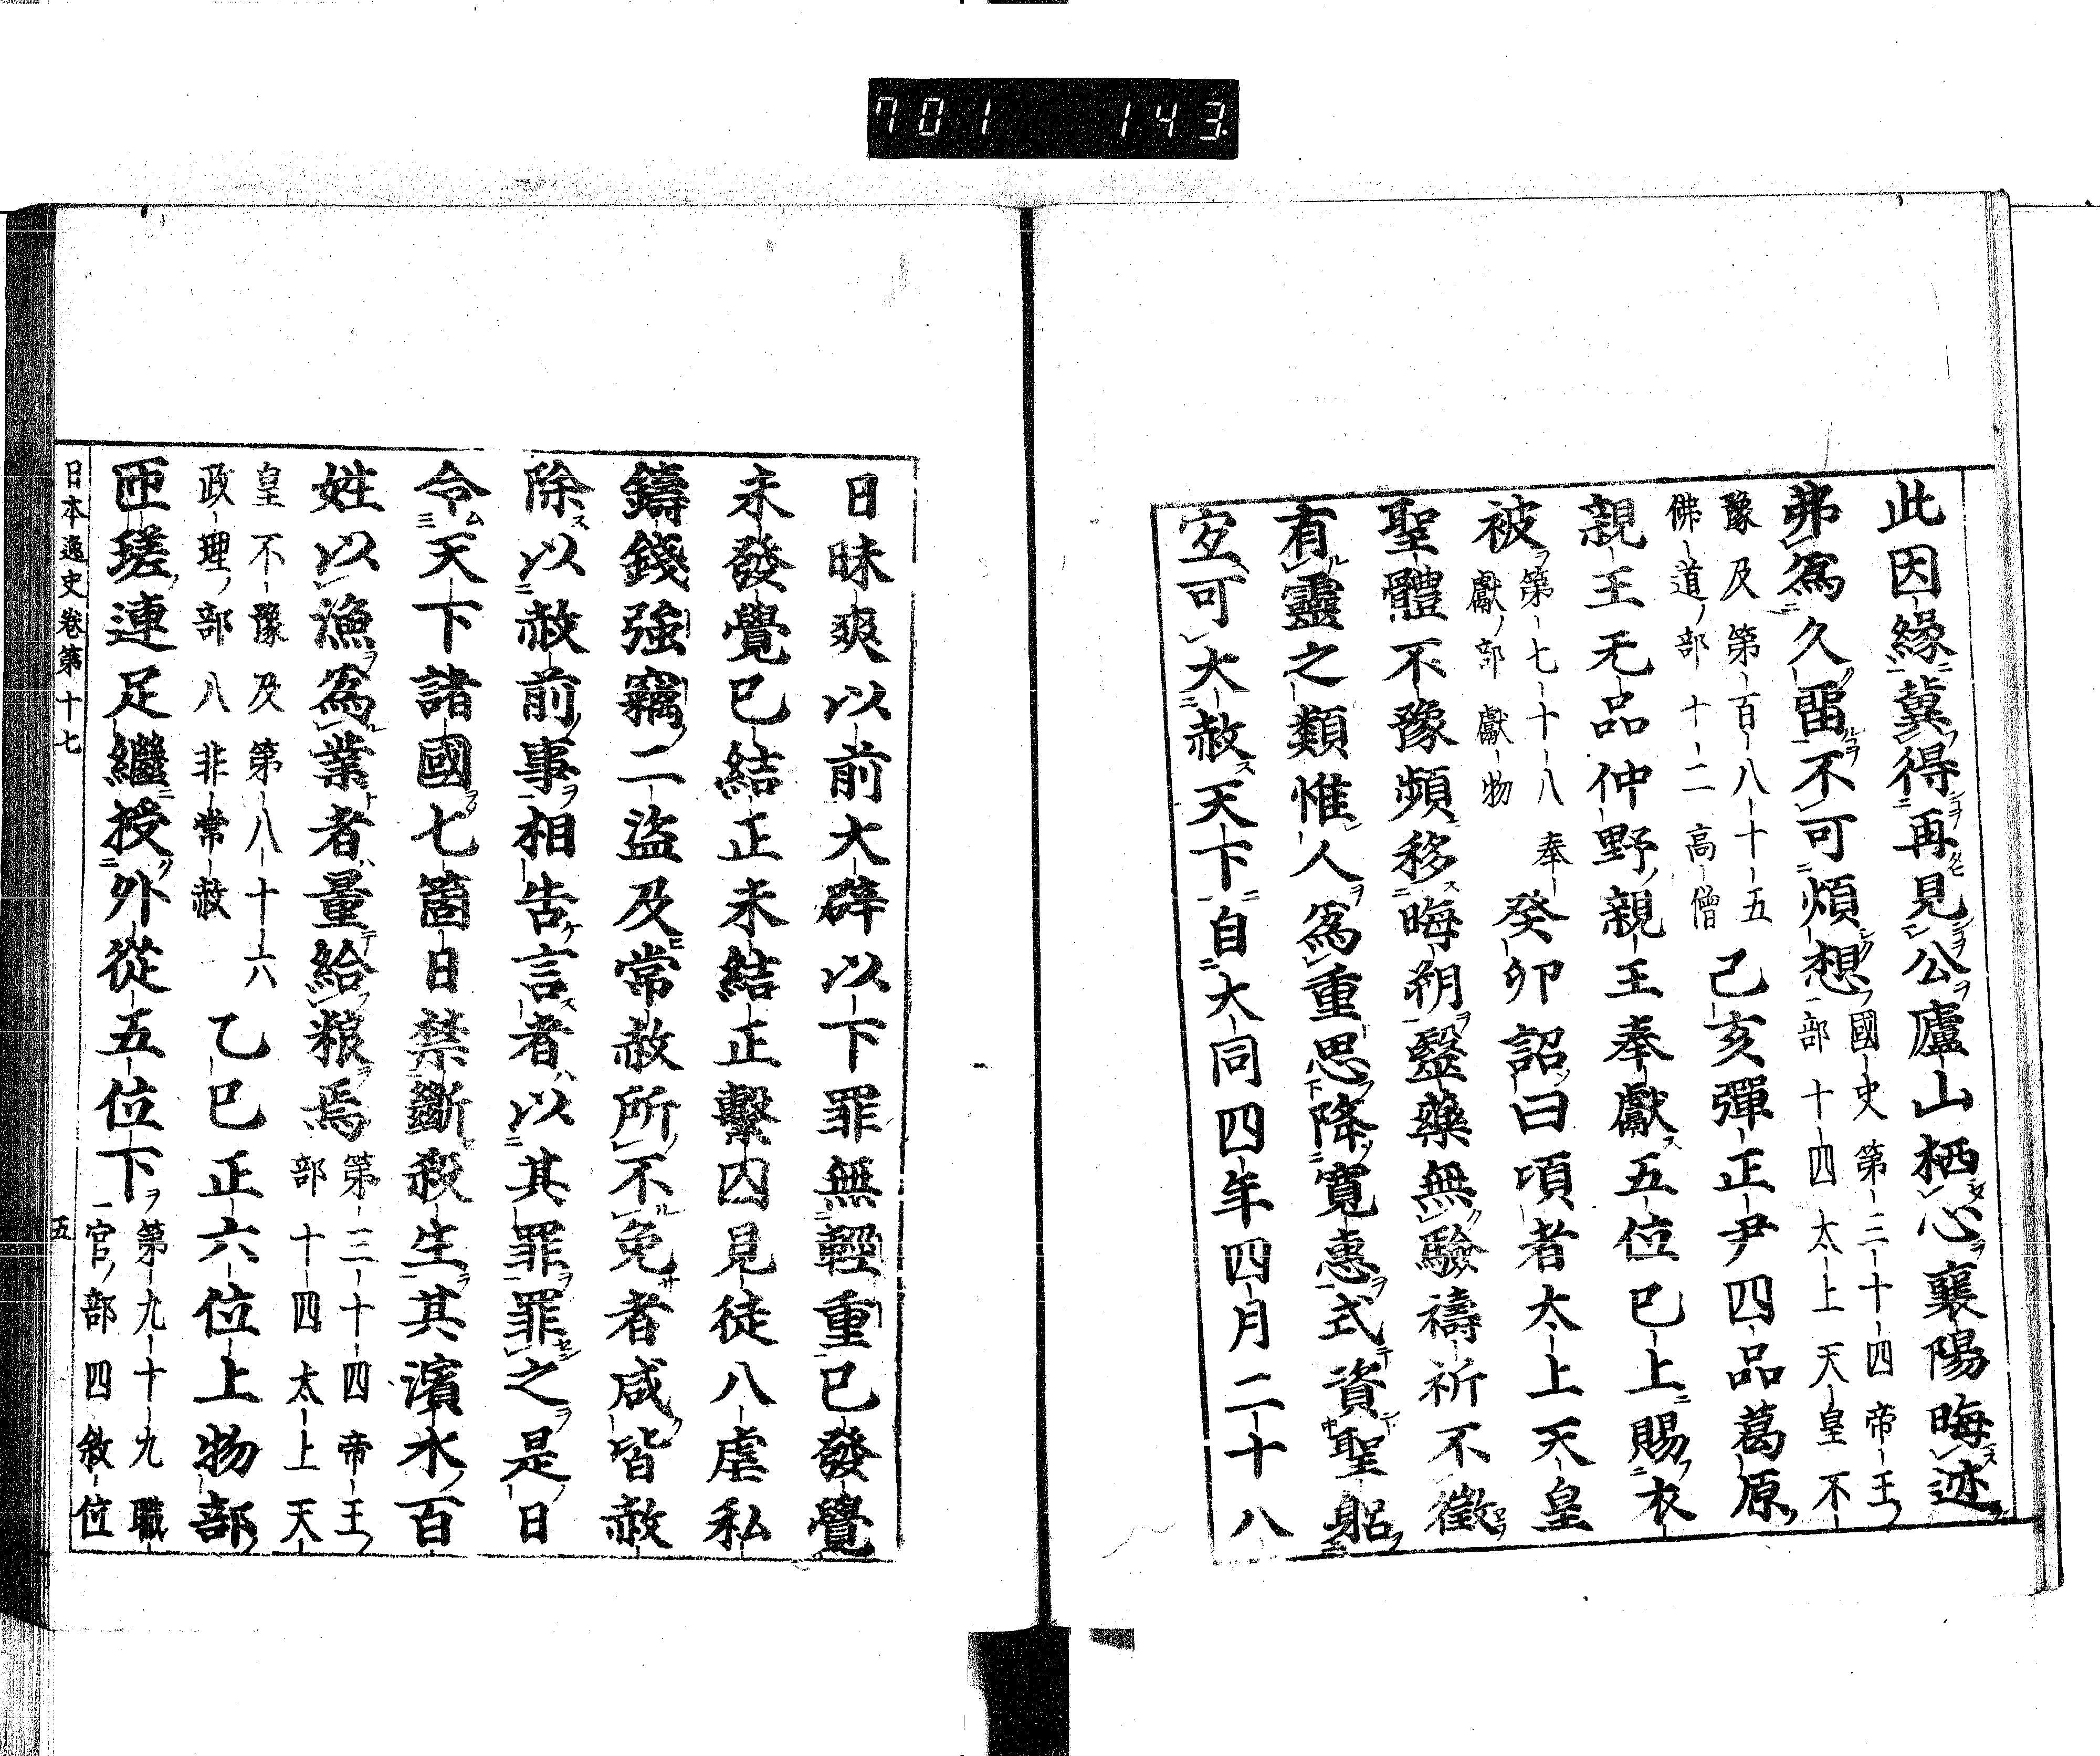 701 143
此因緣冀得再見公廬山栖心襄陽晦迹
弗爲久畱不可煩想國史第三十四帝王
部十四太上天皇不
豫及第百八十五
佛道部十二高僧己亥彈正尹四品葛原
親王无品仲野親王奉獻五位已上賜衣
被第七十八奉
獻部獻物癸卯詔曰頃者太上天皇
聖體不豫頻移晦朔毉藥無驗禱祈不徵
有靈之類惟人爲重思降寬惠式資聖躬
宜可大赦天下自大同四年四月二十八
日昧爽以前大辟以下罪無輕重已發覺
未發覺已結正未結正繫囚見徒八虐私
鑄錢強竊二盜及常赦所不免者咸皆赦
除以赦前事相告言者以其罪罪之是日
令天下諸國七箇日禁斷殺生其濱水百
姓以漁爲業者量給粮焉第三十四帝王
部十四太上天
皇不豫及第八十六
政理部八非常赦乙巳正六位上物部
匝瑳連足繼授外從五位下第九十九職
官部四敘位
日本逸史卷第十七 五